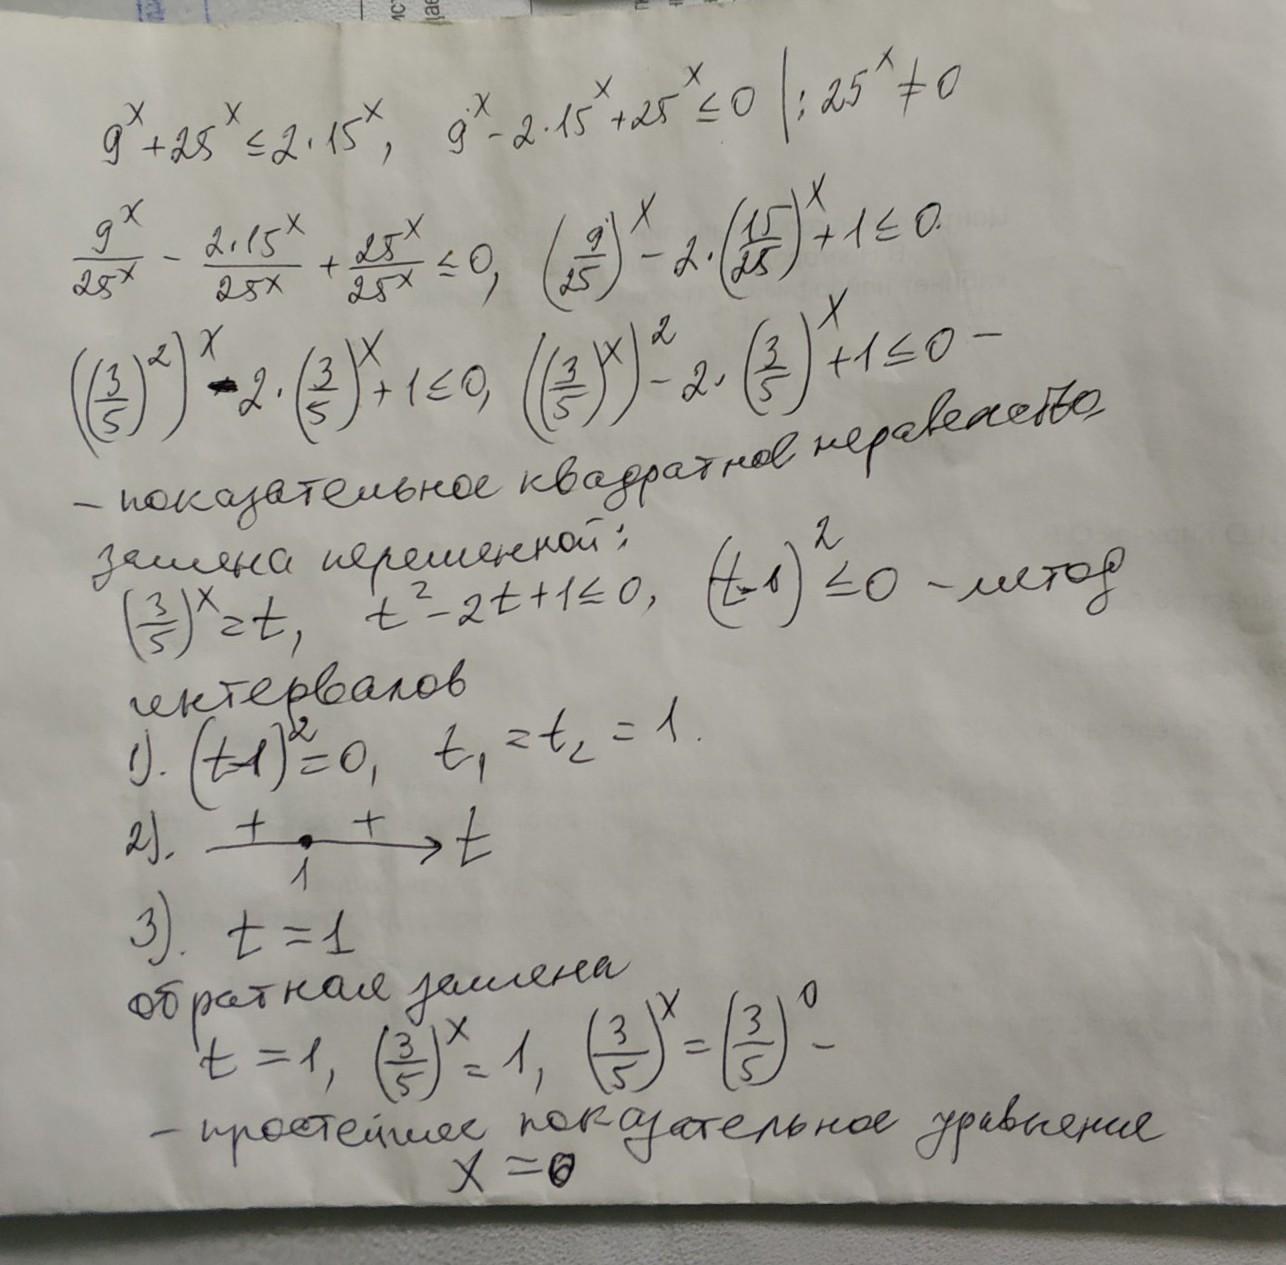 9^x + 25^x ≤ 2·15^x, 9^x - 2·15^x + 25^x ≤ 0 | : 25^x ≠ 0
9^x/25^x - 2·15^x/25^x + 25^x/25^x ≤ 0, (9/25)^x - 2·(15/25)^x + 1 ≤ 0.
((3/5)^2)^x - 2·(3/5)^x + 1 ≤ 0, ((3/5)^x)^2 - 2·(3/5)^x + 1 ≤ 0 –
– показательное квадратное неравенство
замена переменной:
(3/5)^x = t, t^2 - 2t + 1 ≤ 0, (t-1)^2 ≤ 0 – метод
интервалов
1). (t-1)^2 = 0, t₁ = t₂ = 1.
2). + + t
1
3). t = 1
обратная замена
t = 1, (3/5)^x = 1, (3/5)^x = (3/5)^0 –
– простейшее показательное уравнение
x = 0